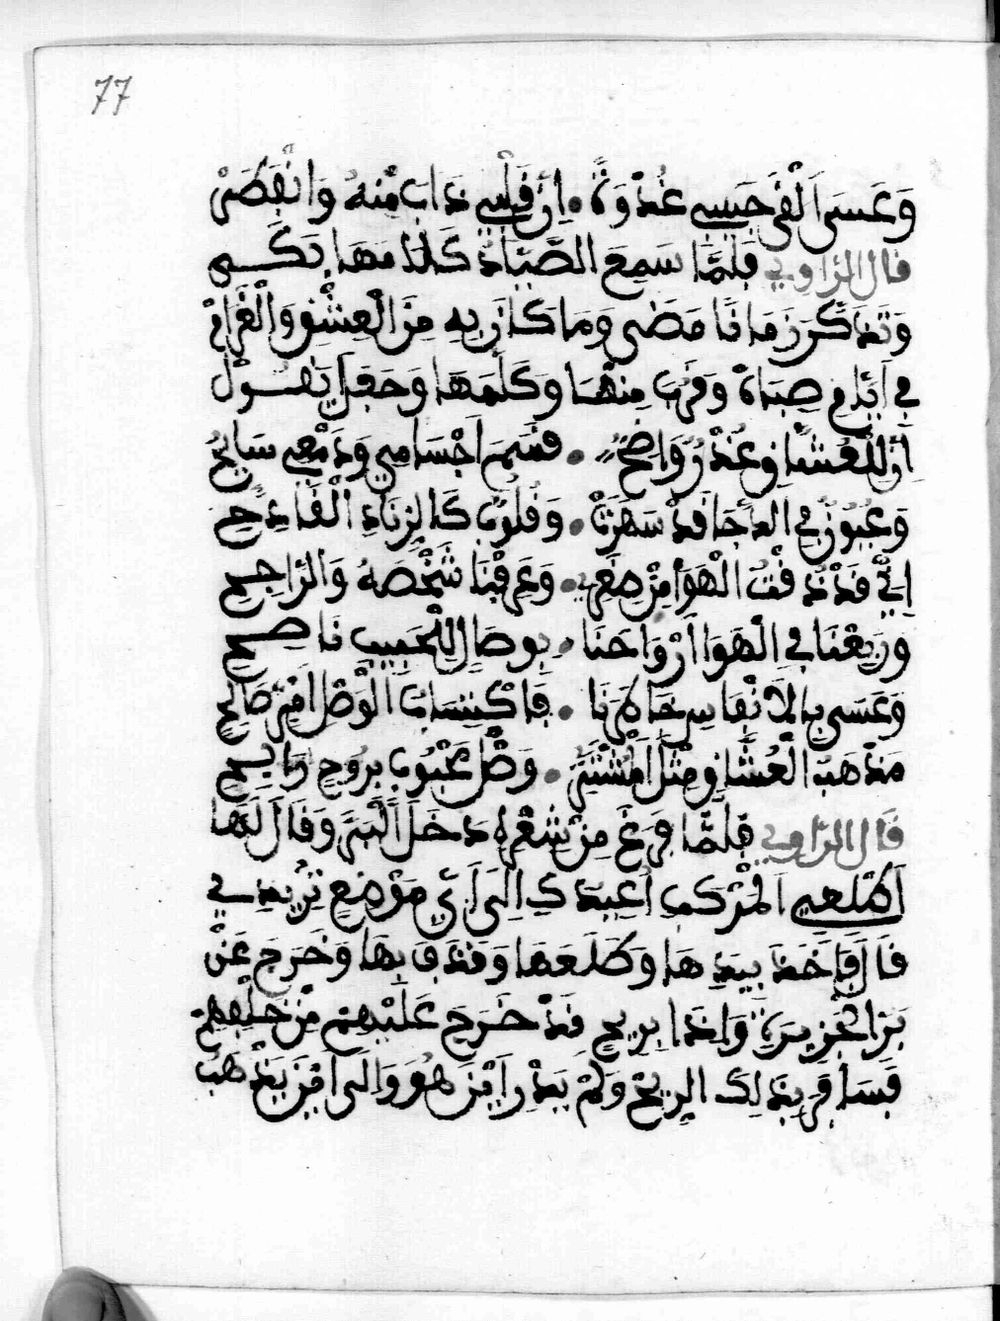 77
وَعَسَى اَلْقَى حَبِيبِي غُدْوَةً • اِنَّ قَلْبِي ذَابَ مِنْهُ وَانْفَطَرْ
قال الراوي فَلَمَّا سَمِعَ الصَّيَّادُ كَلَامَهَا بَكَى
وَتَذَكَّرَ زَمَانًا مَضَى وَمَا كَانَ بِهِ مِنَ الْعِشْقِ وَالْغَرَامْ
فِي اَيَّامِ صِبَاهُ وَقَرُبَ مِنْهَا وَكَلَّمَهَا وَجَعَلَ يَقُولْ
اِنَّ لِلْعُشَّاقِ عُذْرٌ وَاضِحٌ • سَقَمَ اجْسَامِي وَدَمْعِي سَايِحٌ
وَعُيُونٌ فِي الدُّجَا قَدْ سَهِرَتْ • وَقُلُوبٌ كَالزِّنَادِ الْقَادِحِ
اِنِّي قَدْ ذُقْتُ الْهَوَا مِنْ صِغَرِي • وَعَرَفْنَا شَخْصَهُ وَالرَّاجِحِ
وَرَبِعْنَا فِي الْهَوَا اَرْوَاحَنَا • بِوِصَالٍ لِلْحَبِيبِ نَاصِحِ
وَعَسَى بِالْاَنْفَاسِ خَاطَرْنَا • فَاكْتِسَابُ الْوَصْلِ اَمْرٌ صَالِحٌ
مَذْهَبُ الْعُشَّاقِ مِثْلُ الْمُشْتَرِ • وَصْلَ مَحْبُوبٍ بِرُوحٍ رَابِحِ
قَالَ الرَّاوِي فَلَمَّا فَرَغَ مِنْ شِعْرِهِ دَخَلَ الْبَيْتَ وَقَالَ لَهَا
اَطْلَعِي الْمَرْكَبَ اَعَبَّدَكِ اِلَى اَيِّ مَوْضِعٍ تُرِيدِي
قَالَ فَاَخَذَ بِيَدِهَا وَطَلَّعَهَا وَقَذَفَ بِهَا وَخَرَجَ عَنْ
بَرِّ الْجَزِيرَةِ وَاِذَا بِرِيحٍ قَدْ خَرَجَ عَلَيْهِمْ مِنْ خَلْفِهِمْ
فَسَافَرَ بِذَلِكَ الرِّيحْ وَلَمْ يَدْرِ اَيْنَ هُوَ وَاِلَى اَيْنَ يَذْهَبُ